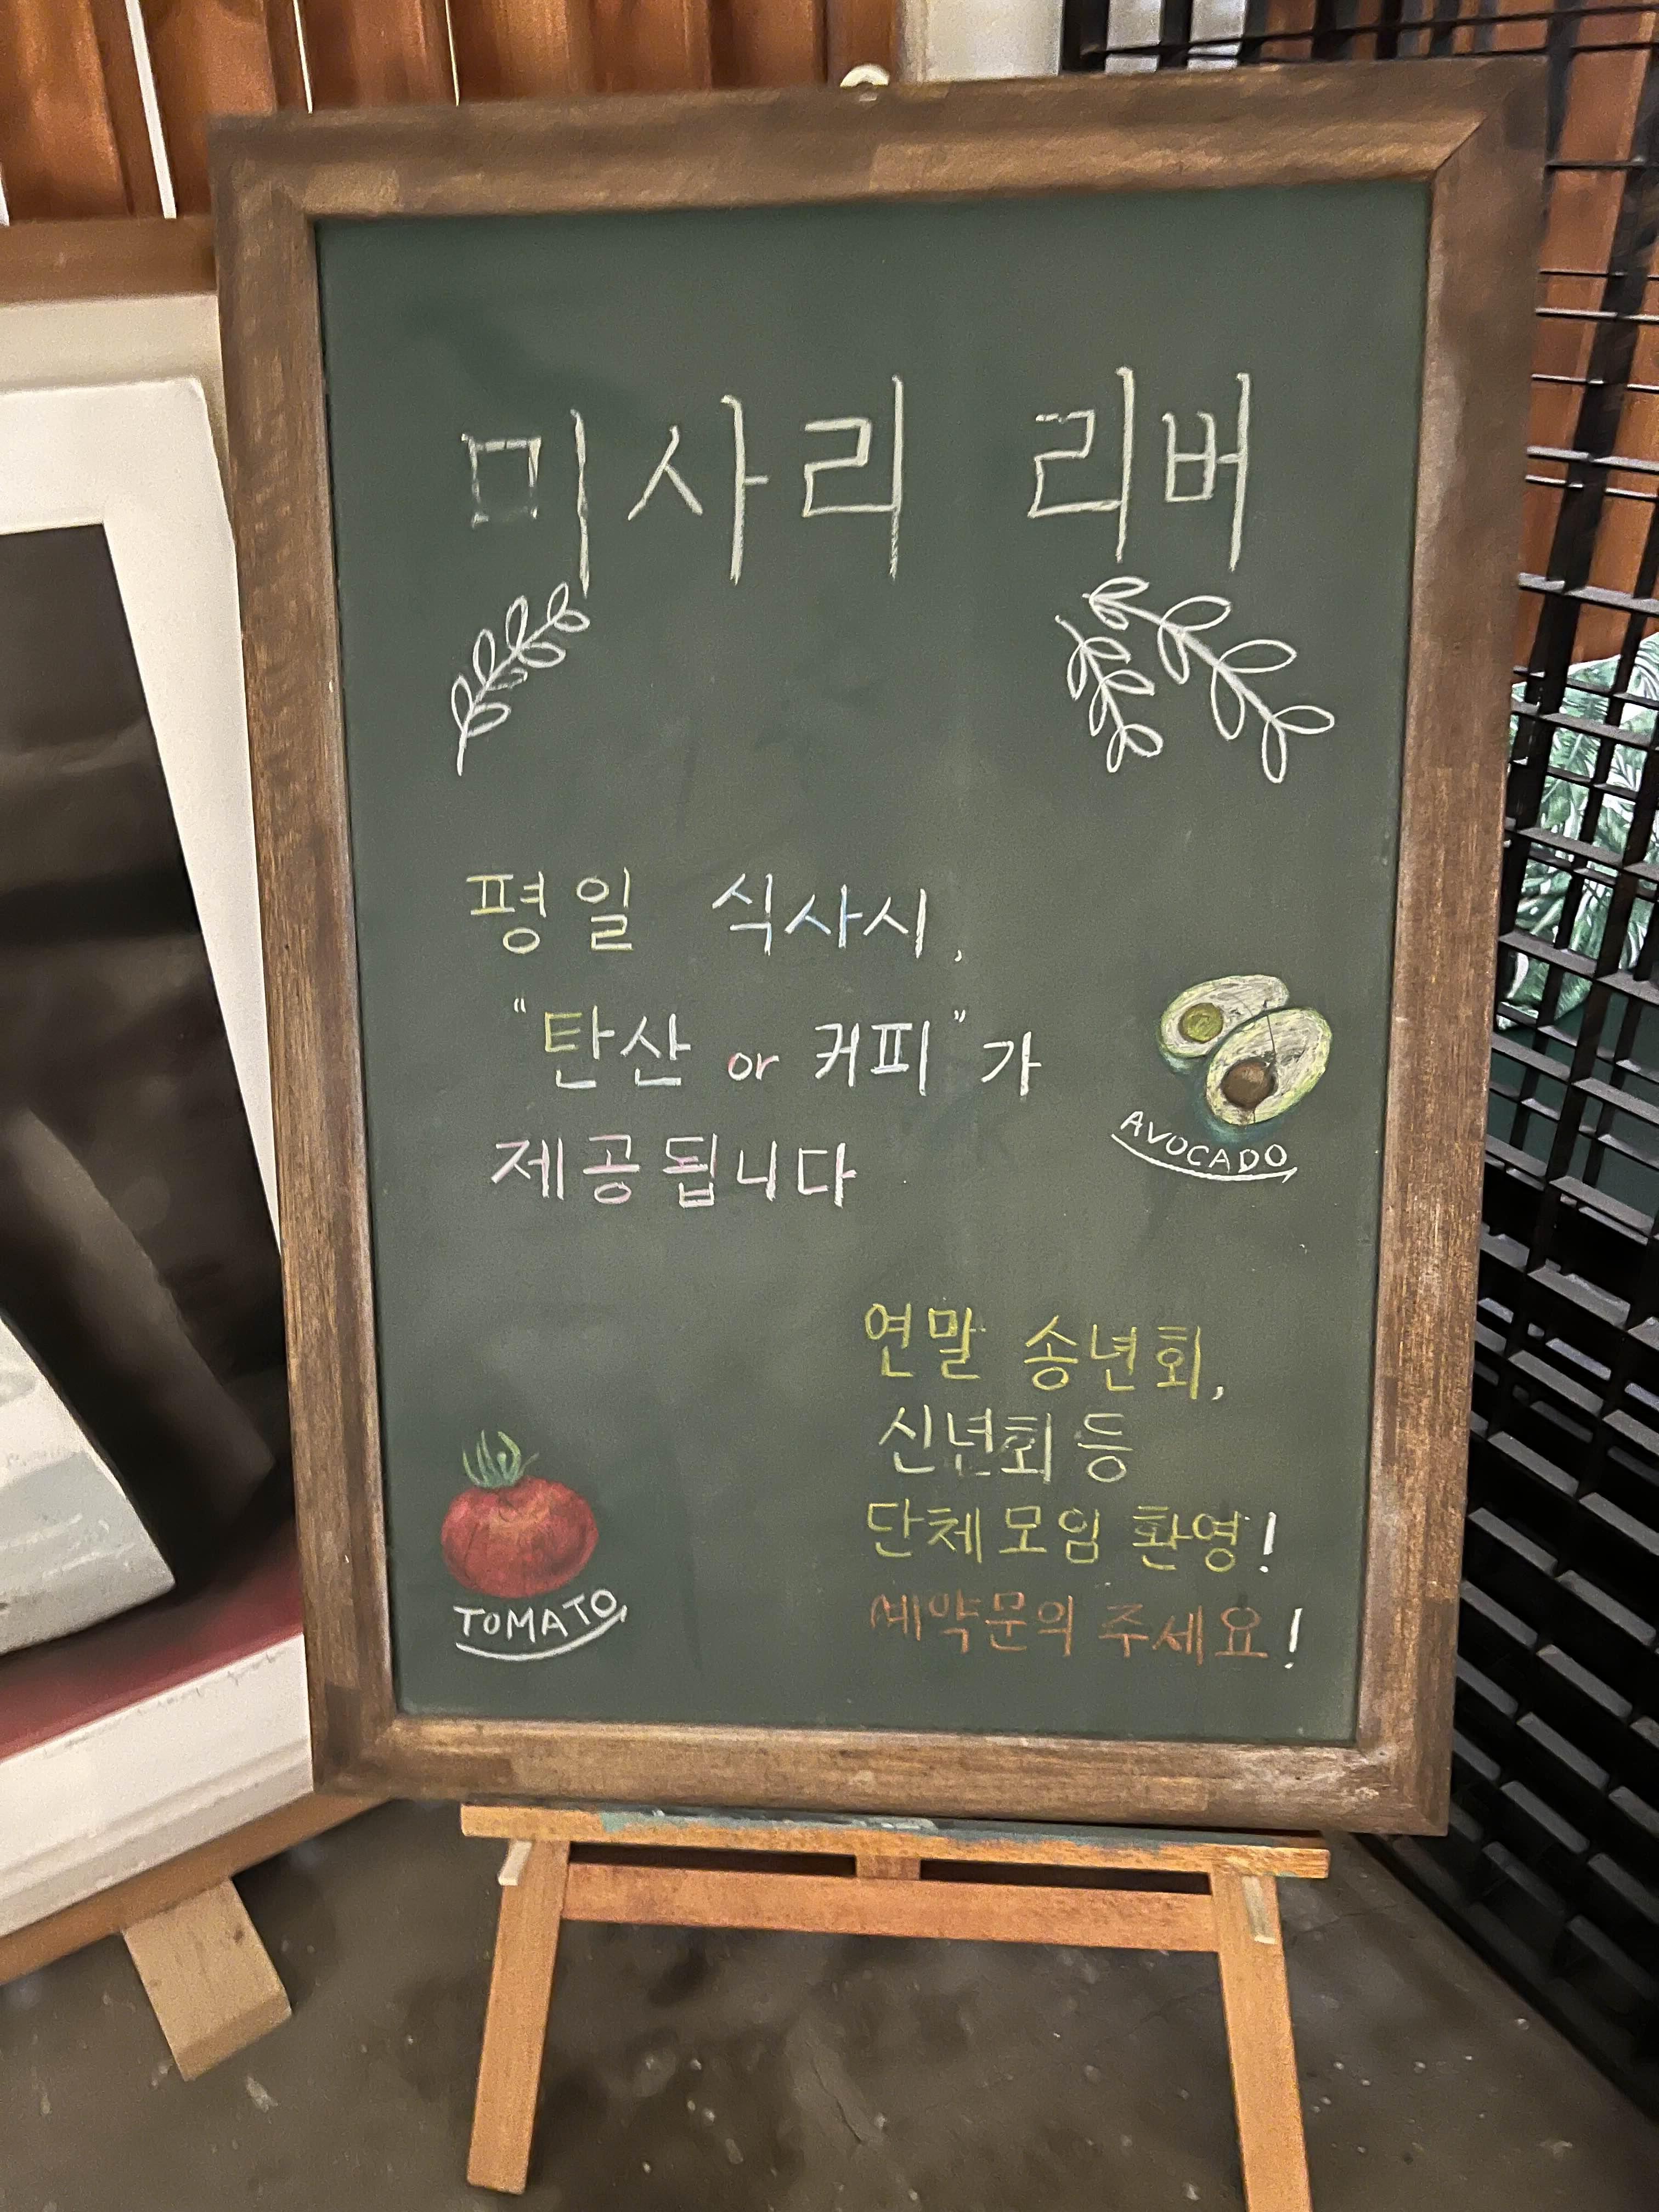 미사리 리버
평일 식사시,
"탄산 or 커피"가
제공됩니다
AVOCADO
연말 송년회,
신년회 등
단체모임 환영!
예약문의 주세요!
TOMATO